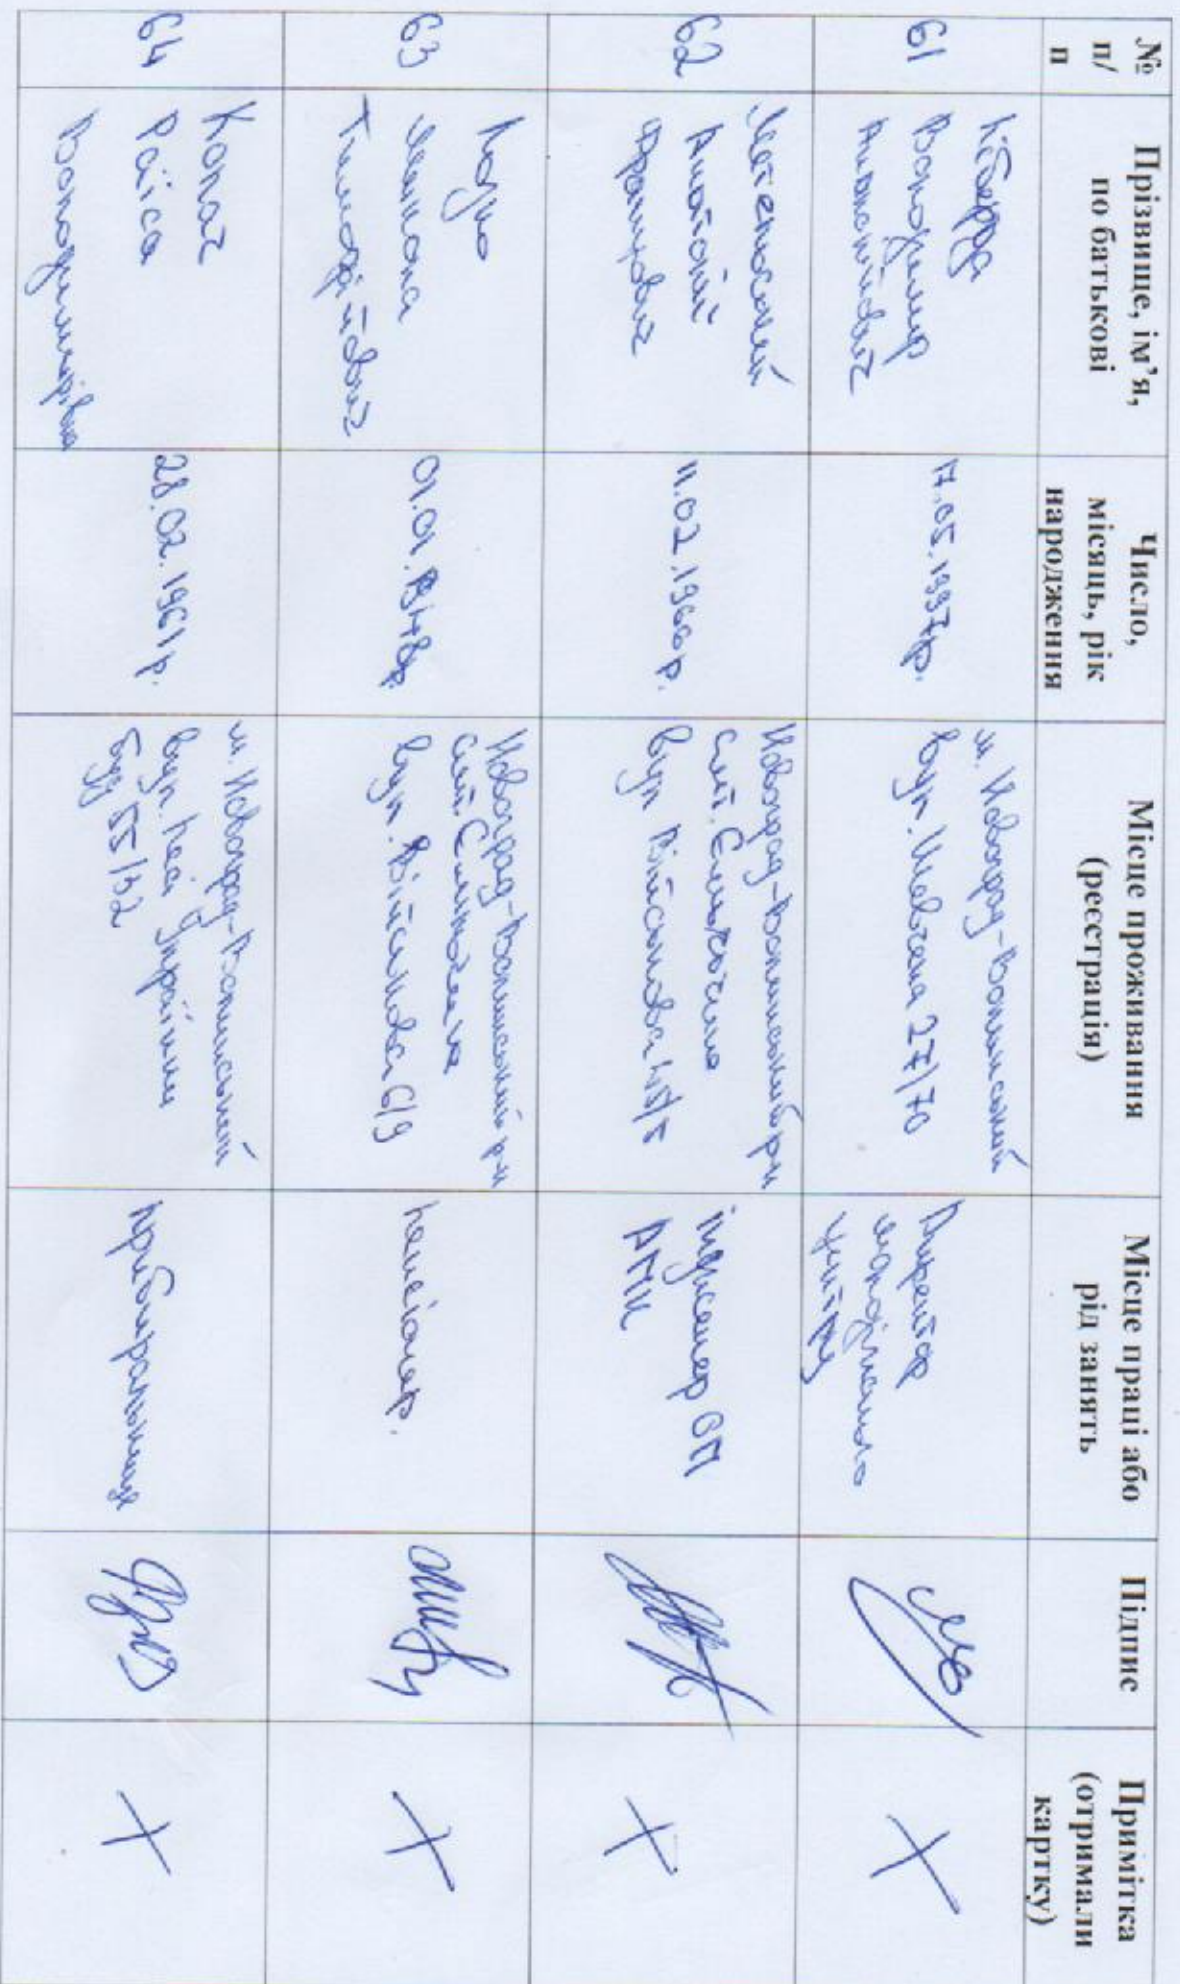 № п/п
Прізвище, ім’я, по батькові
Число, місяць, рік народження
Місце проживання (реєстрація)
Місце праці або рід занять
Підпис
Примітка (отримали картку)
61
Володимир
17.05.1997р.
м. Новоград-Волинський
вул. Шевченка 27/70
Директор
62
Анатолій
Францович
11.02.1966р.
Новоград-Волинський р-н
смт. Ємільчине
вул. Військова
інженер ОП
63
Тимофійович
01.01.1948р.
Новоград-Волинський р-н
смт. Ємільчине
вул. Військова 6/9
пенсіонер.
64
Копач
Раїса
Володимирівна
28.02.1961р.
м. Новоград-Волинський
вул. Лесі Українки
буд 55/32
прибиральниця